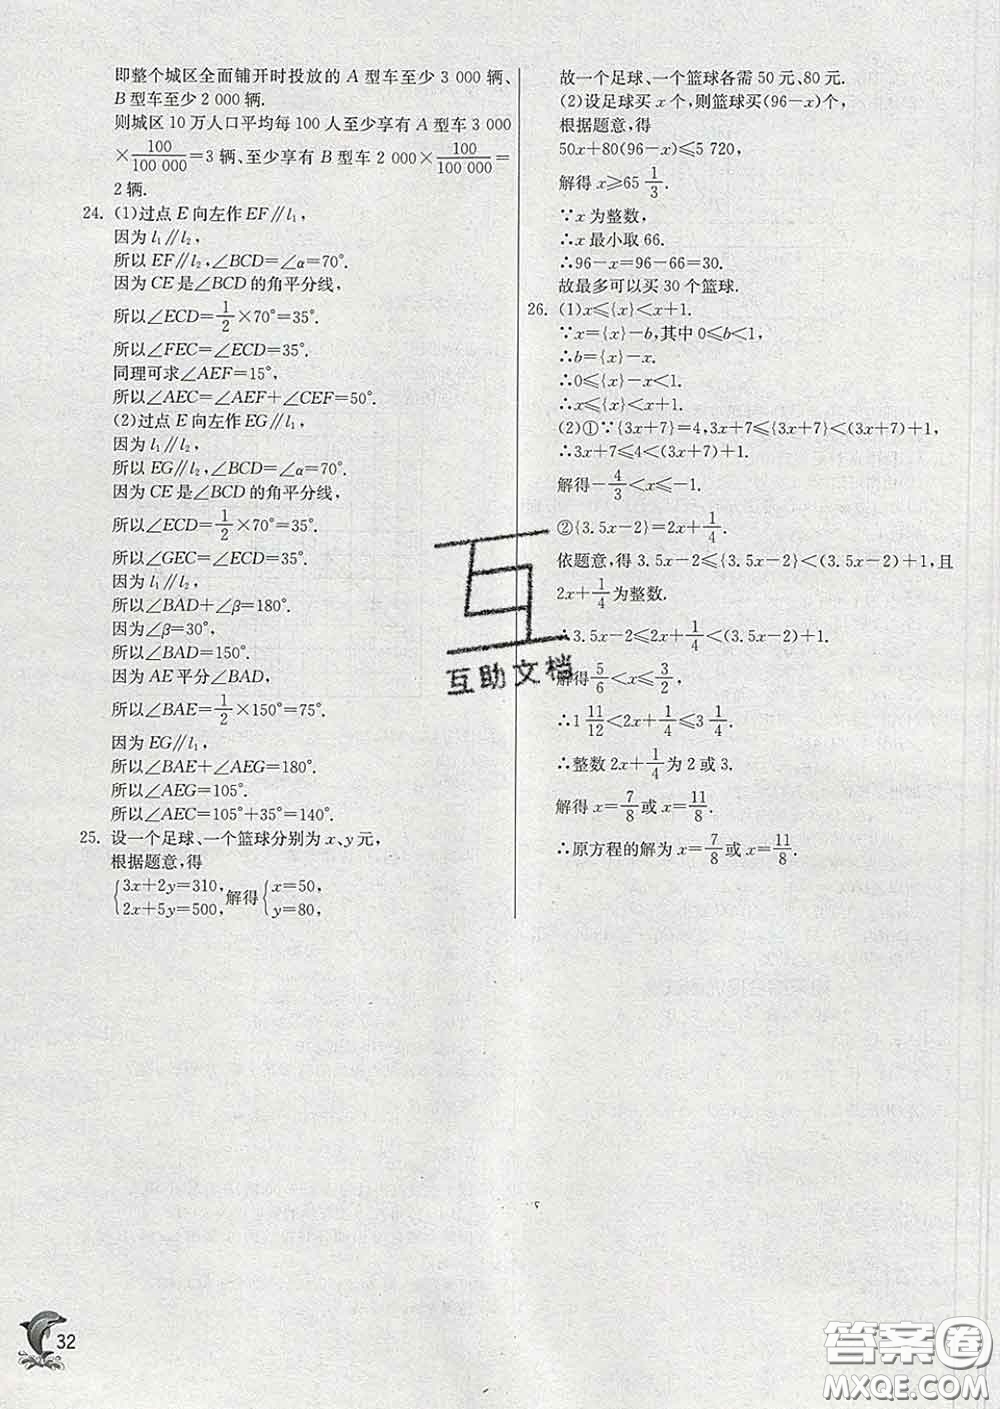 即整个城区全面铺开时投放的 A 型车至少 3 000 辆、
B 型车至少 2 000 辆.
则城区 10 万人口平均每 100 人至少享有 A 型车 3 000
×100/100 000=3 辆、至少享有 B 型车 2 000×100/100 000=
2 辆.
24. (1)过点 E 向左作 EF∥l₁,
因为 l₁∥l₂,
所以 EF∥l₂,∠BCD=∠α=70°.
因为 CE 是∠BCD 的角平分线,
所以∠ECD=1/2×70°=35°.
所以∠FEC=∠ECD=35°.
同理可求∠AEF=15°,
所以∠AEC=∠AEF+∠CEF=50°.
(2)过点 E 向左作 EG∥l₁,
因为 l₁∥l₂,
所以 EG∥l₂,∠BCD=∠α=70°.
因为 CE 是∠BCD 的角平分线,
所以∠ECD=1/2×70°=35°.
所以∠GEC=∠ECD=35°.
因为 l₁∥l₂,
所以∠BAD+∠β=180°.
因为∠β=30°,
所以∠BAD=150°.
因为 AE 平分∠BAD,
所以∠BAE=1/2×150°=75°.
因为 EG∥l₁,
所以∠BAE+∠AEG=180°.
所以∠AEG=105°.
所以∠AEC=105°+35°=140°.
25. 设一个足球、一个篮球分别为 x、y 元,
根据题意,得
{3x+2y=310, 2x+5y=500, 解得{x=50, y=80,
故一个足球、一个篮球各需 50 元、80 元.
(2)设足球买 x 个,则篮球买(96-x)个,
根据题意,得
50x+80(96-x)≤5 720,
解得 x≥65 1/3.
∵x 为整数,
∴x 最小取 66.
∴96-x=96-66=30.
故最多可以买 30 个篮球.
26. (1)x≤{x}<x+1.
∵x={x}-b,其中 0≤b<1,
∴b={x}-x.
∴0≤{x}-x<1.
∴x≤{x}<x+1.
(2)①∵{3x+7}=4,3x+7≤{3x+7}<(3x+7)+1,
∴3x+7≤4<(3x+7)+1.
解得-4/3<x≤-1.
②{3.5x-2}=2x+1/4.
依题意,得 3.5x-2≤{3.5x-2}<(3.5x-2)+1,且
2x+1/4 为整数.
∴3.5x-2≤2x+1/4<(3.5x-2)+1.
解得5/6<x≤3/2,
∴1 11/12<2x+1/4≤3 1/4.
∴整数 2x+1/4 为 2 或 3.
解得 x=7/8 或 x=11/8.
∴原方程的解为 x=7/8 或 x=11/8.
互
互助文档
32
答案圈
MXQE.COM